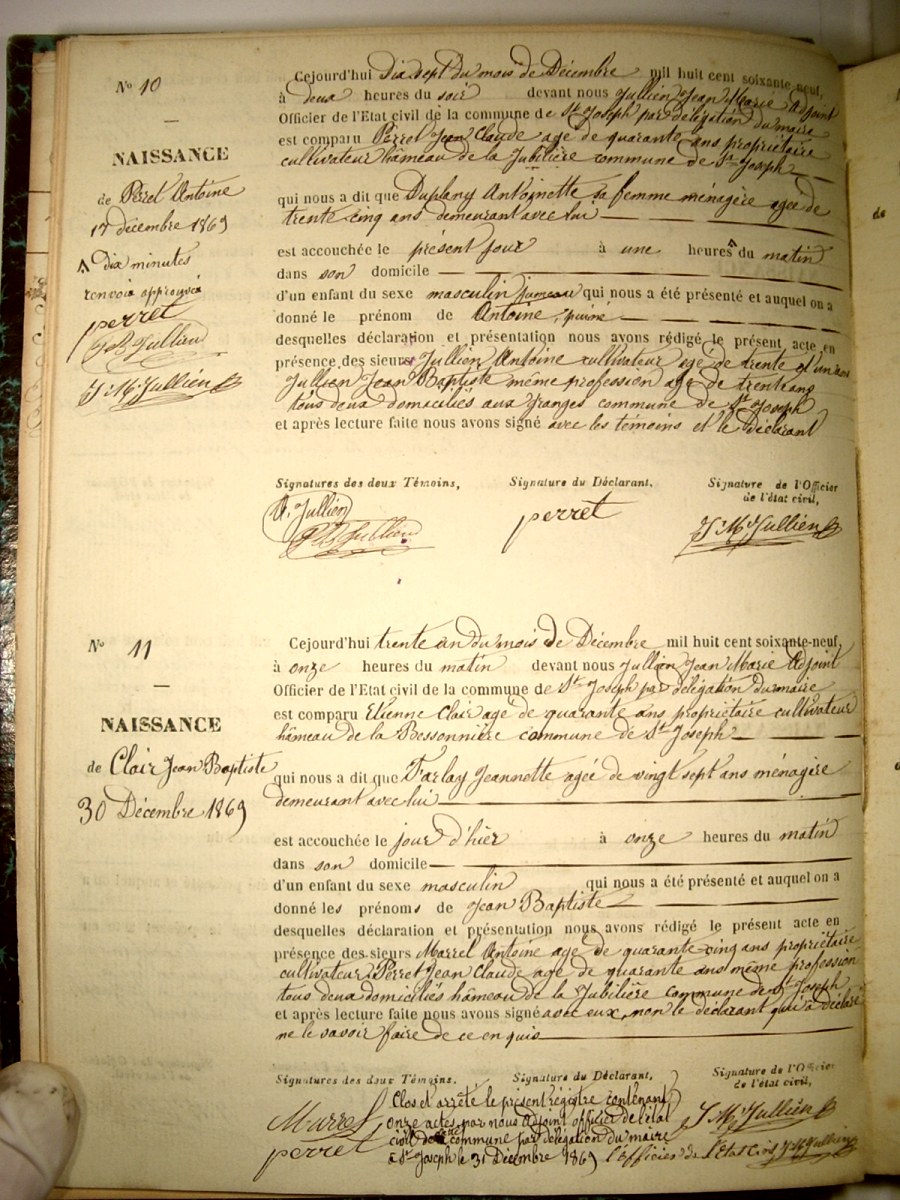 N° 10
NAISSANCE
de Perret Antoine
17 décembre 1869
dix minutes
renvoi approuvé
perret
J B Jullien
J M Jullien
Cejourd'hui Dix sept du mois de Décembre mil huit cent soixante-neuf,
à deux heures du soir devant nous Jullien Jean Marie Adjoint
Officier de l'Etat civil de la commune de St Joseph par délégation du maire
est comparu Perret Jean Claude agé de quarante ans propriétaire
cultivateur hâmeau de la Jubilière commune de St Joseph
qui nous a dit que Duplany Antoinette sa femme ménagère agée de
trente cinq ans demeurant avec lui
est accouchée le présent jour à une heures du matin
dans son domicile
d'un enfant du sexe masculin jumeau qui nous a été présenté et auquel on a
donné le prénom de Antoine, puiné
desquelles déclaration et présentation nous avons rédigé le présent acte en
présence des sieurs Jullien Antoine cultivateur agé de trente et un ans
Jullien Jean Baptiste même profession agé de trente ans
tous deux domiciliés aux granges commune de St Joseph
et après lecture faite nous avons signé avec les témoins et le Déclarant
Signatures des deux Témoins, Signature du Déclarant, Signature de l'Officier
de l'état civil,
A. Jullien perret J M Jullien
J B Jullien
N° 11
NAISSANCE
de Clair Jean Baptiste
30 Décembre 1869
Cejourd'hui trente un du mois de Décembre mil huit cent soixante-neuf,
à onze heures du matin devant nous Jullien Jean Marie Adjoint
Officier de l'Etat civil de la commune de St Joseph par délégation du maire
est comparu Etienne Clair agé de quarante ans propriétaire cultivateur
hâmeau de la Bessonnière commune de St Joseph
qui nous a dit que Farlay Jeannette agée de vingt sept ans ménagère
demeurant avec lui
est accouchée le jour d'hier à onze heures du matin
dans son domicile
d'un enfant du sexe masculin qui nous a été présenté et auquel on a
donné les prénoms de Jean Baptiste
desquelles déclaration et présentation nous avons rédigé le présent acte en
présence des sieurs Marrel Antoine agé de quarante cinq ans propriétaire
cultivateur Perret Jean Claude agé de quarante ans même profession
tous deux domiciliés hâmeau de la Jubilière commune de St Joseph
et après lecture faite nous avons signé avec eux, non le déclarant qui a déclaré
ne le savoir faire de ce enquis
Signatures des deux Témoins. Signature du Déclarant, Signature de l'Officier
de l'état civil,
Marrel
perret
Clos et arrêté le présent régistre contenant
onze actes par nous Adjoint officier de l'état
civil de commune par délégation du maire
à St Joseph le 31 Décembre 1869 l'officier de l'Etat civil J M Jullien
J M Jullien